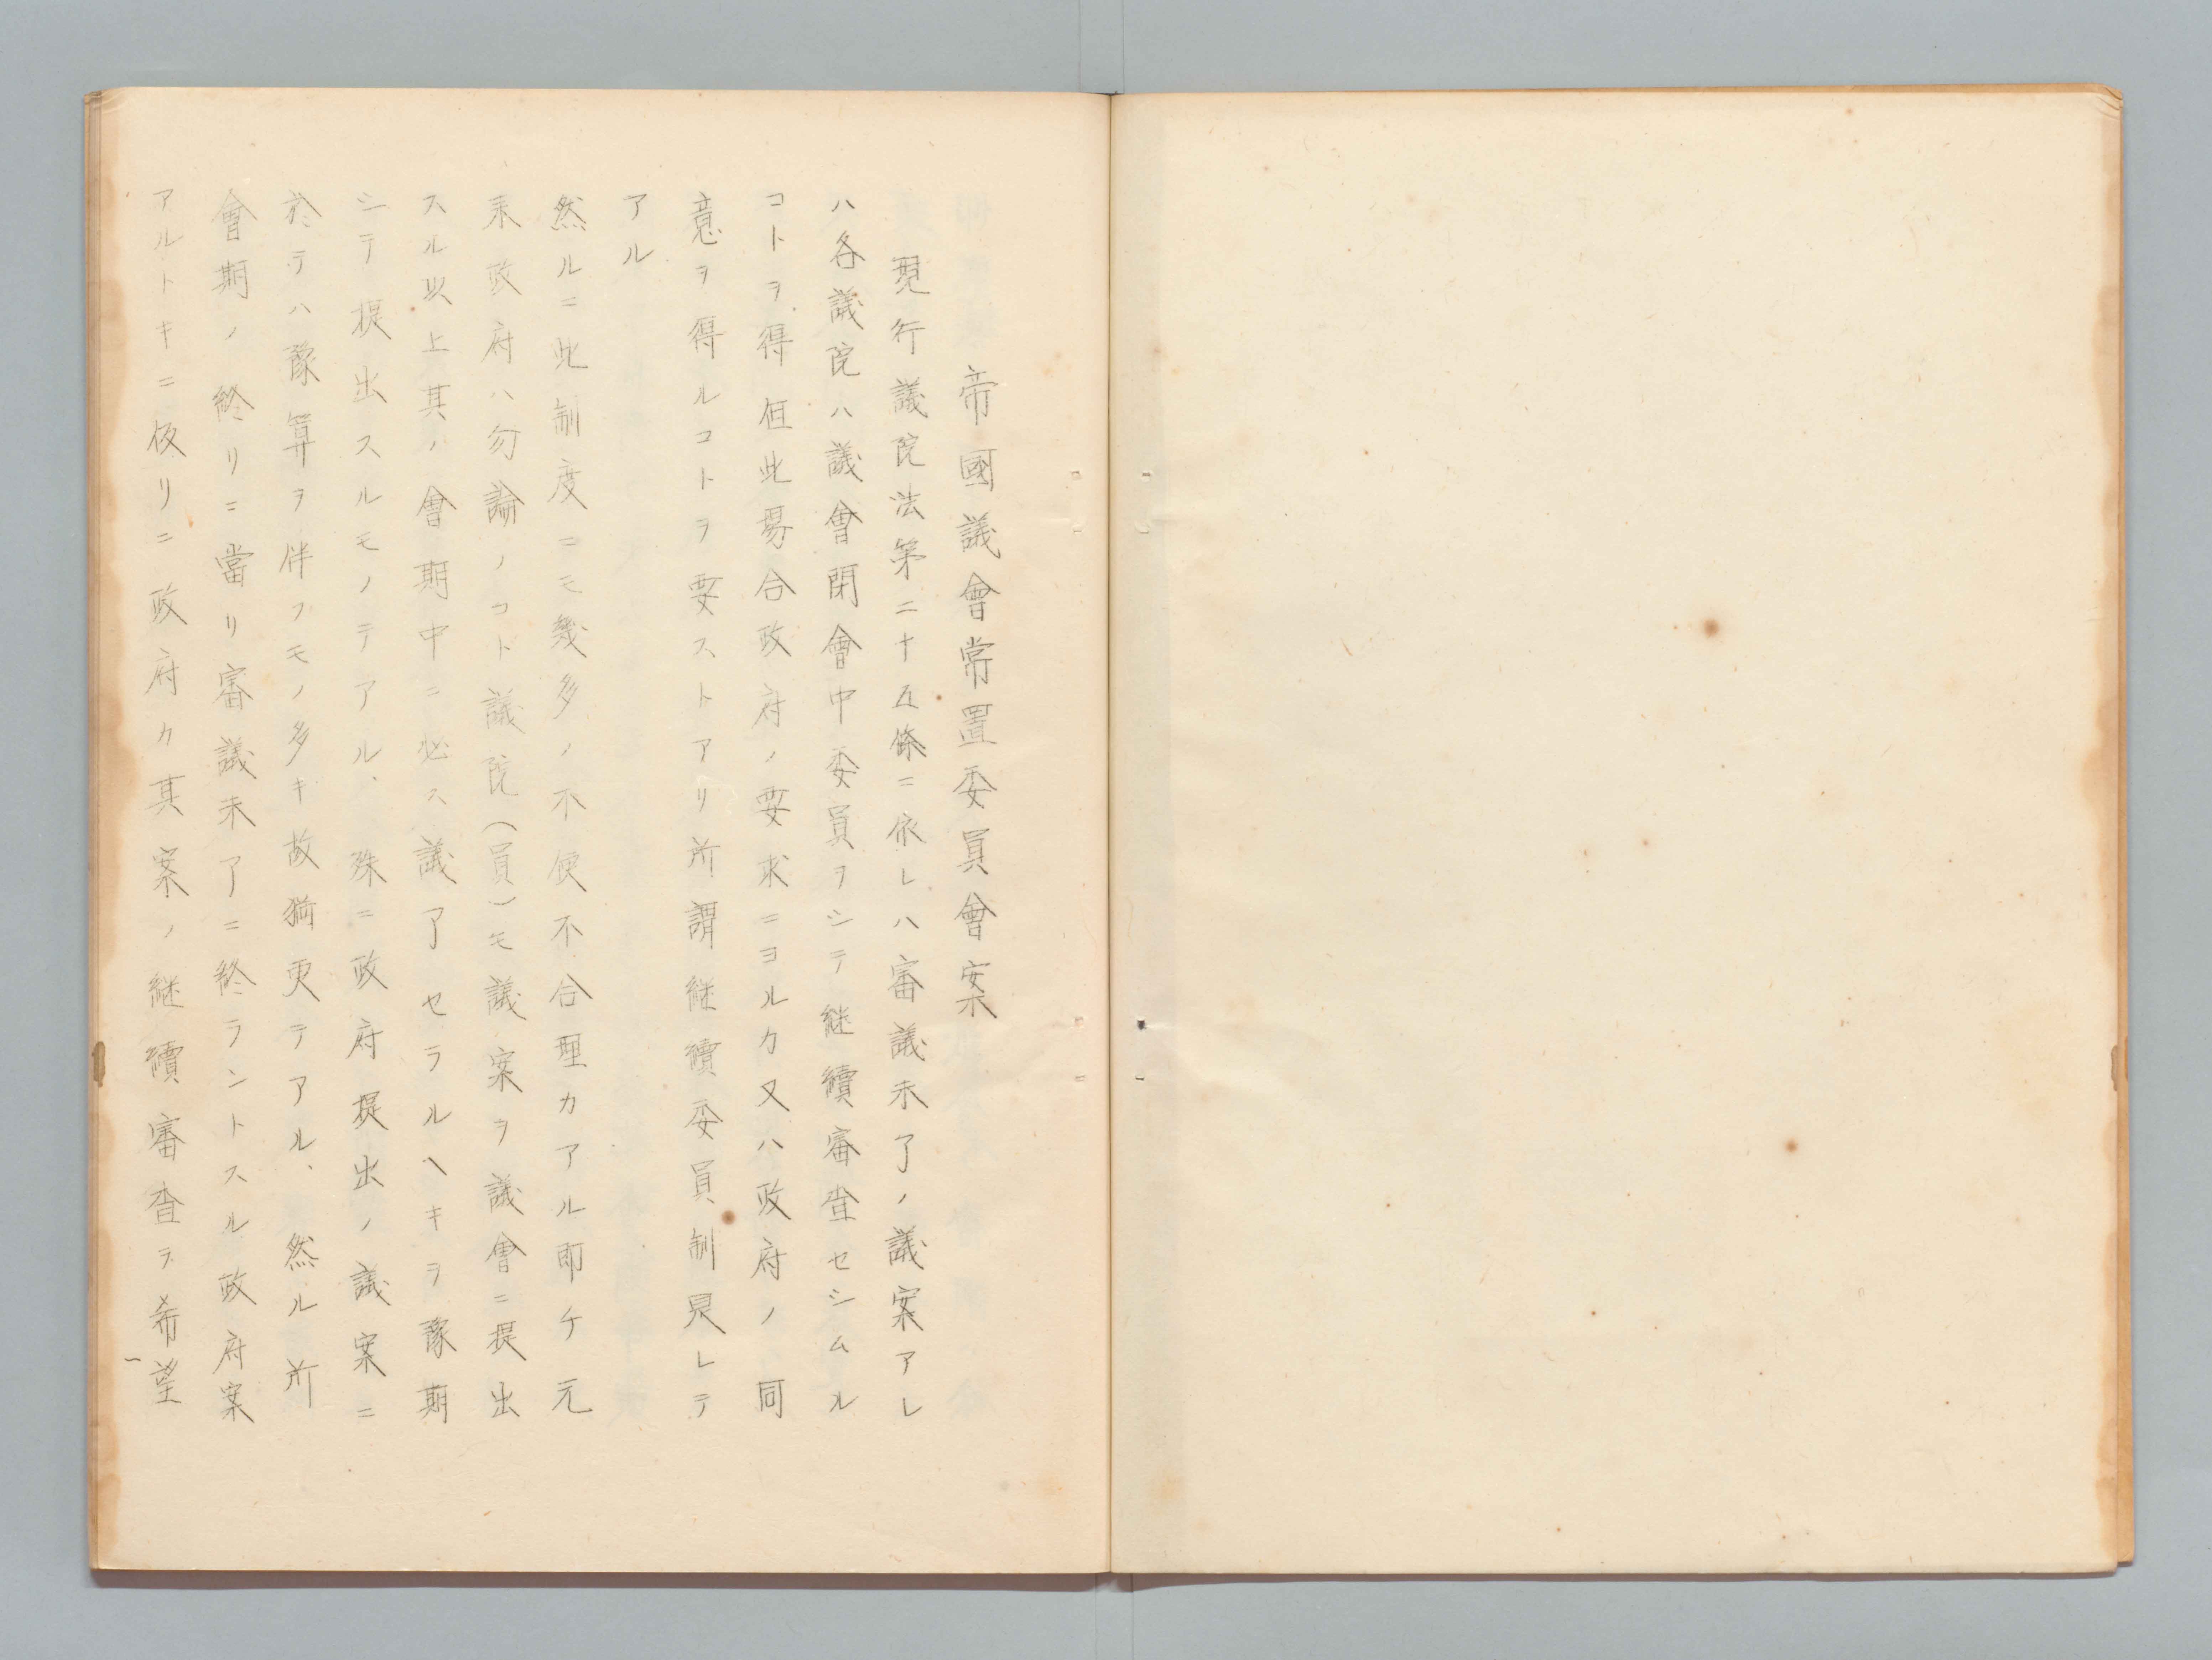 帝國議會常置委員會案
現行議院法第二十五條ニ依レハ審議未了ノ議案アレ
ハ各議院ハ議會閉會中委員ヲシテ継續審査セシムル
コトヲ得但此場合政府ノ要求ニヨルカ又ハ政府ノ同
意ヲ得ルコトヲ要ストアリ所謂継續委員制是レテ
アル
然ルニ此制度ニモ幾多ノ不便不合理カアル即チ元
来政府ハ勿論ノコト議院(員)モ議案ヲ議會ニ提出
スル以上其ノ會期中ニ必ス議了セラルヘキヲ豫期
シテ提出スルモノテアル、殊ニ政府提出ノ議案ニ
於テハ豫算ヲ伴フモノ多キ故猶更テアル、然ル所
會期ノ終リニ當リ審議未了ニ終ラントスル政府案
アルトキニ仮リニ政府カ其案ノ継續審査ヲ希望